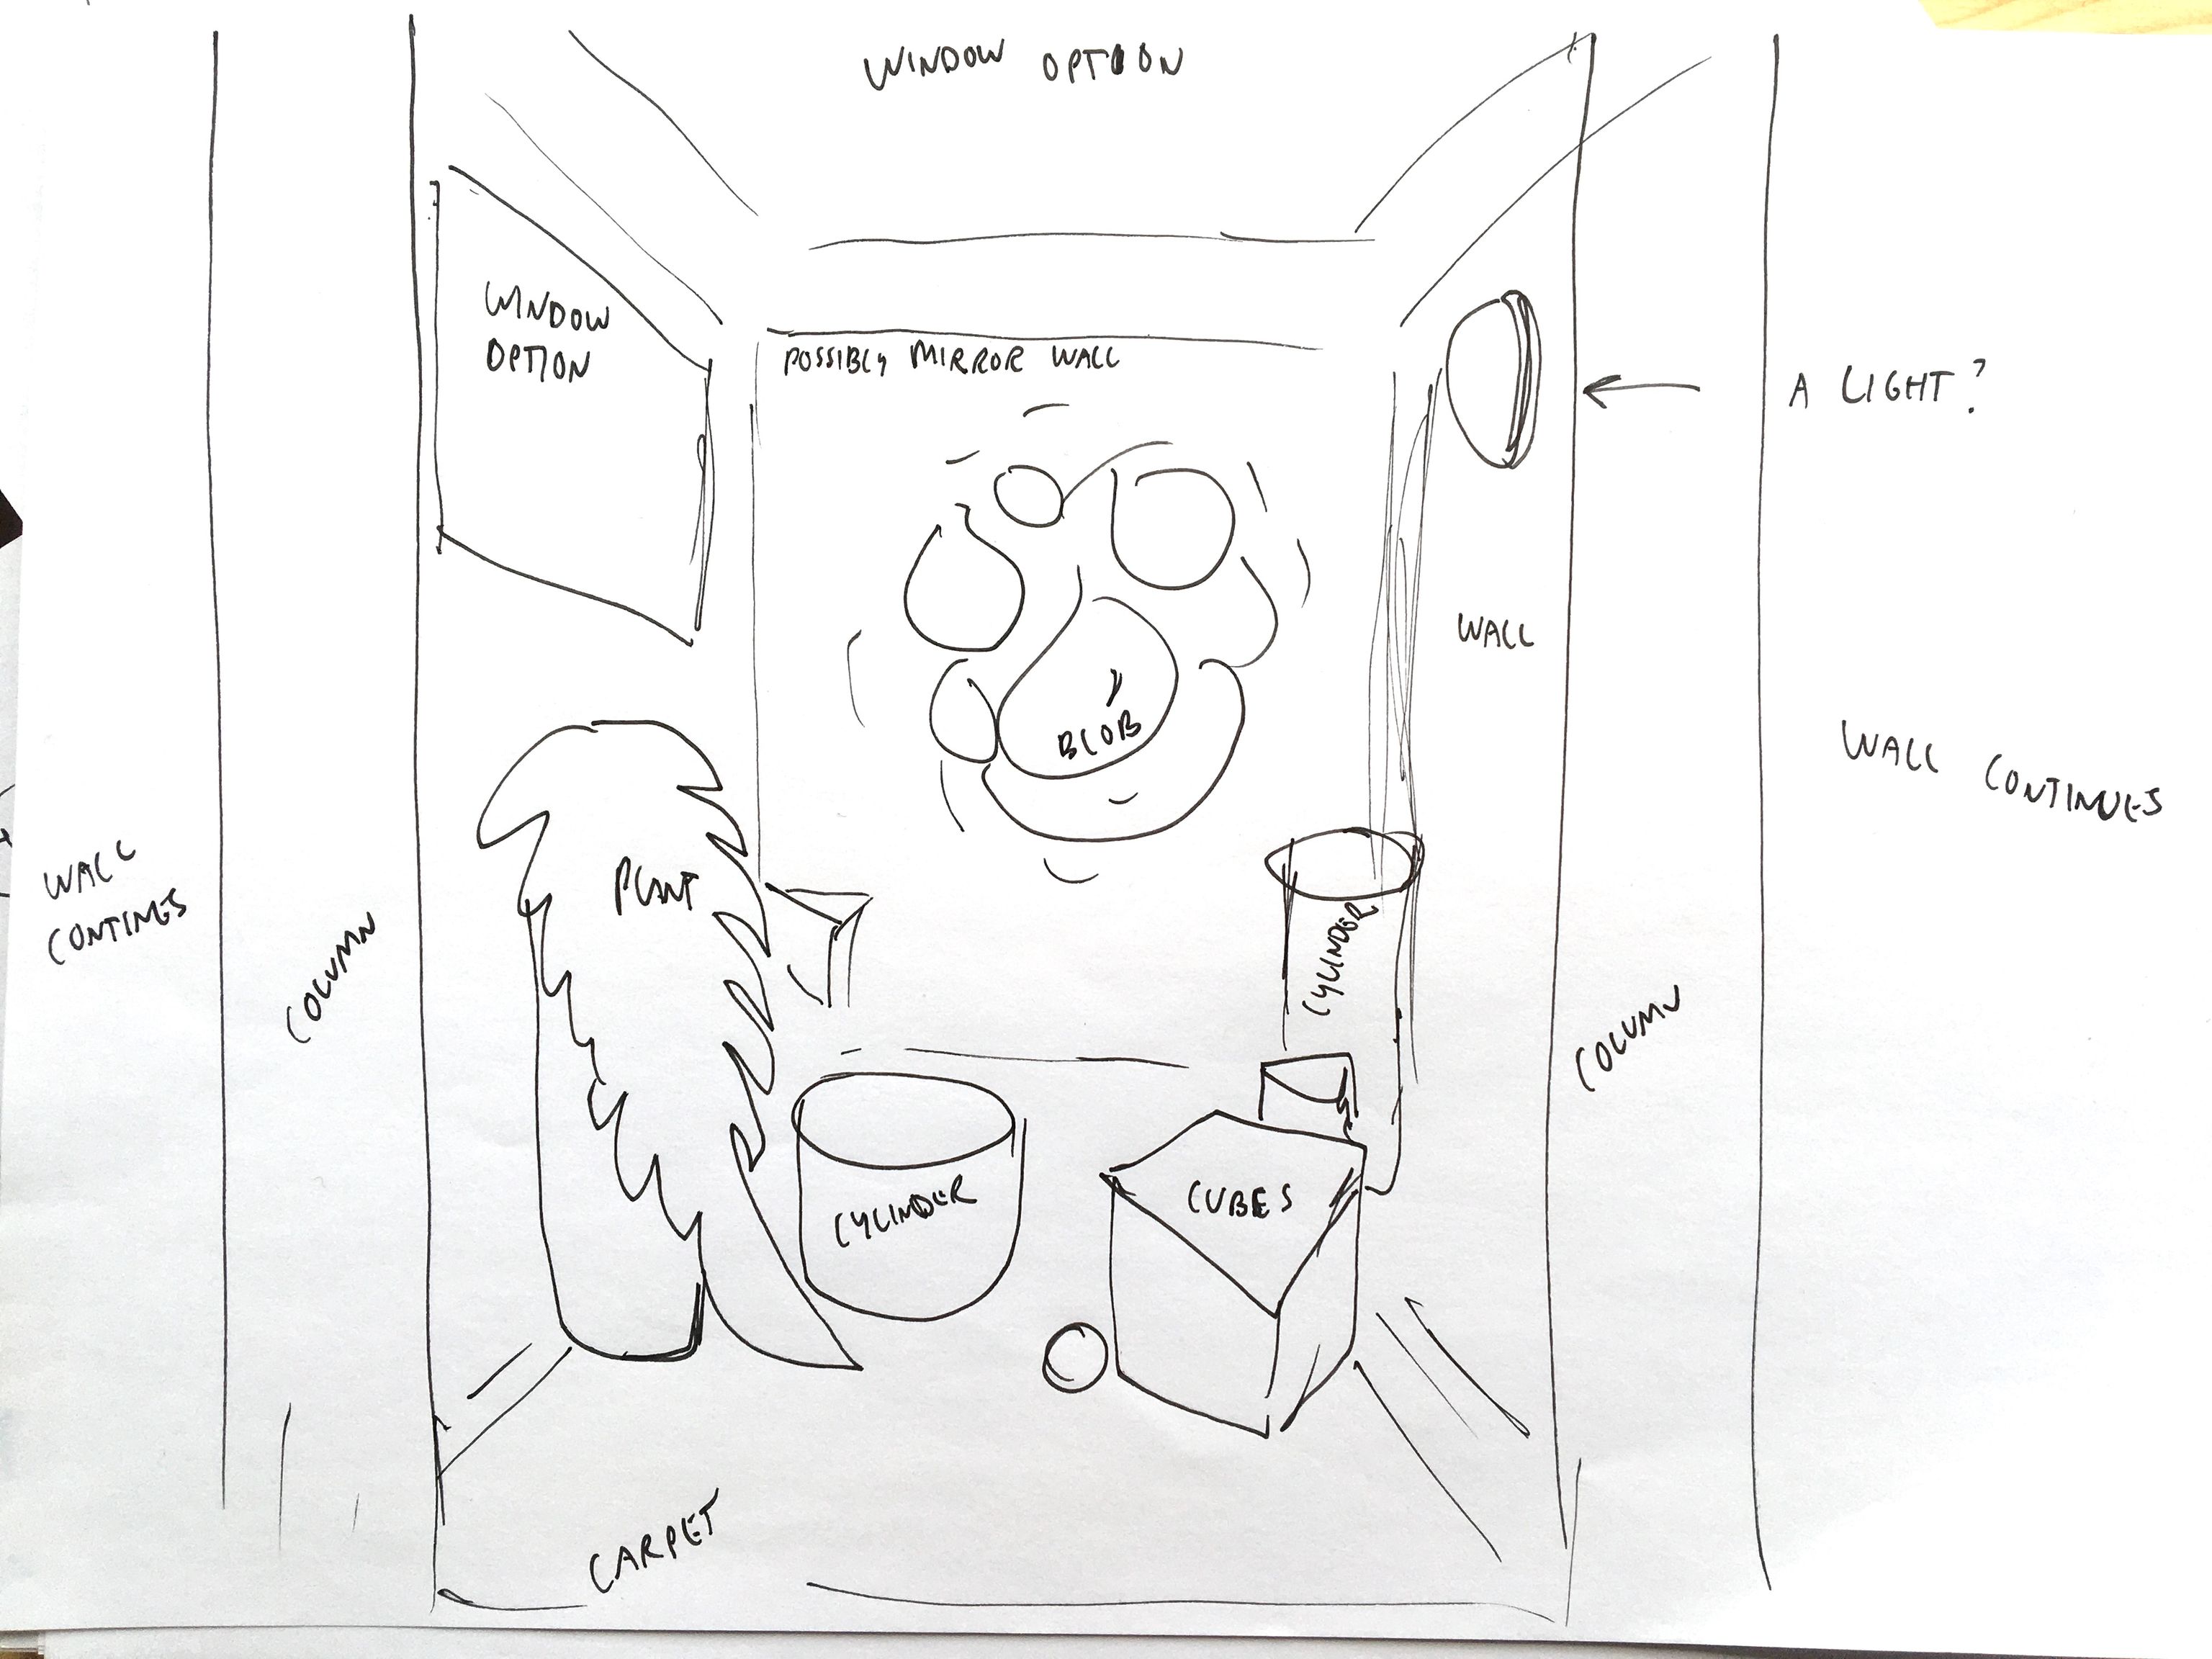 WINDOW OPTION
WINDOW
OPTION
POSSIBLY MIRROR WALL
A LIGHT?
WALL
BLOB
WALL CONTINUES
WALL
CONTINES
PLANT
COLUMN
CYLINDER
COLUMN
CYLINDER
CUBES
CARPET